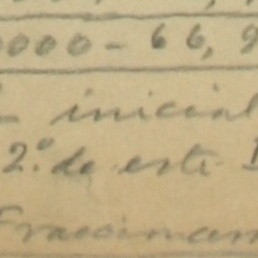 0000 - 66, 9
inicial
2.º de este
Fraccionam